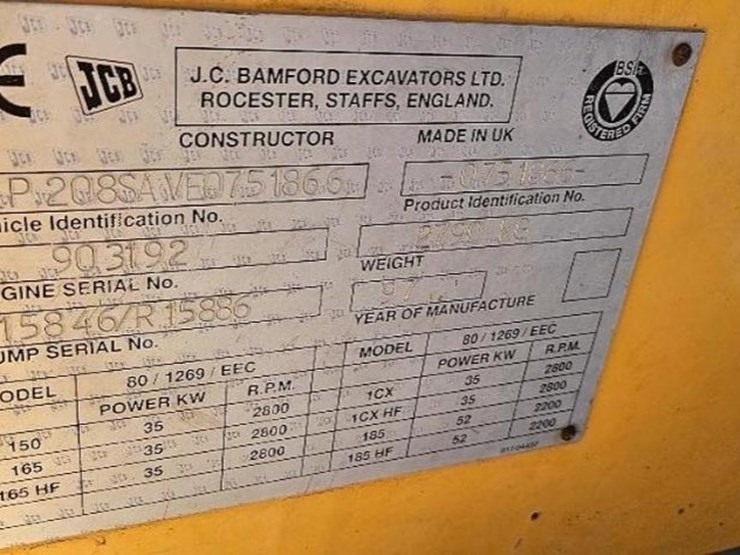 JCB
J.C. BAMFORD EXCAVATORS LTD.
ROCESTER, STAFFS, ENGLAND.
BSI
REGISTERED FIRM
CONSTRUCTOR
MADE IN UK
P 208SAVE0751866
-0751866-
icle Identification No.
Product Identification No.
903192
GINE SERIAL No.
WEIGHT
15846/R 15886
UMP SERIAL No.
YEAR OF MANUFACTURE
ODEL
80 / 1269 / EEC
POWER KW
R.P.M.
150 35 2800
165 35 2800
165 HF 35 2800
MODEL
80 / 1269 / EEC
POWER KW
R.P.M.
1CX 35 2800
1CX HF 35 2800
185 52 2200
185 HF 52 2200